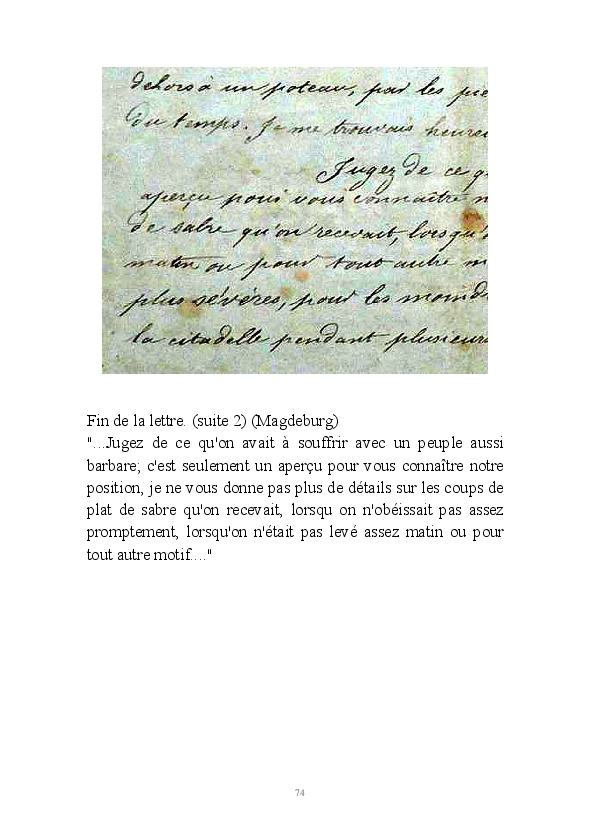 dehors à un poteau, par les pie
du temps. Je me trouvais heure
Jugez de ce q
aperçu pour vous connaître n
de sabre qu'on recevait, lorsqu'
matin ou pour tout autre m
plus sévères, pour les moind
la citadelle pendant plusieur
Fin de la lettre. (suite 2) (Magdeburg)
"...Jugez de ce qu'on avait à souffrir avec un peuple aussi
barbare; c'est seulement un aperçu pour vous connaître notre
position, je ne vous donne pas plus de détails sur les coups de
plat de sabre qu'on recevait, lorsqu on n'obéissait pas assez
promptement, lorsqu'on n'était pas levé assez matin ou pour
tout autre motif...."
74